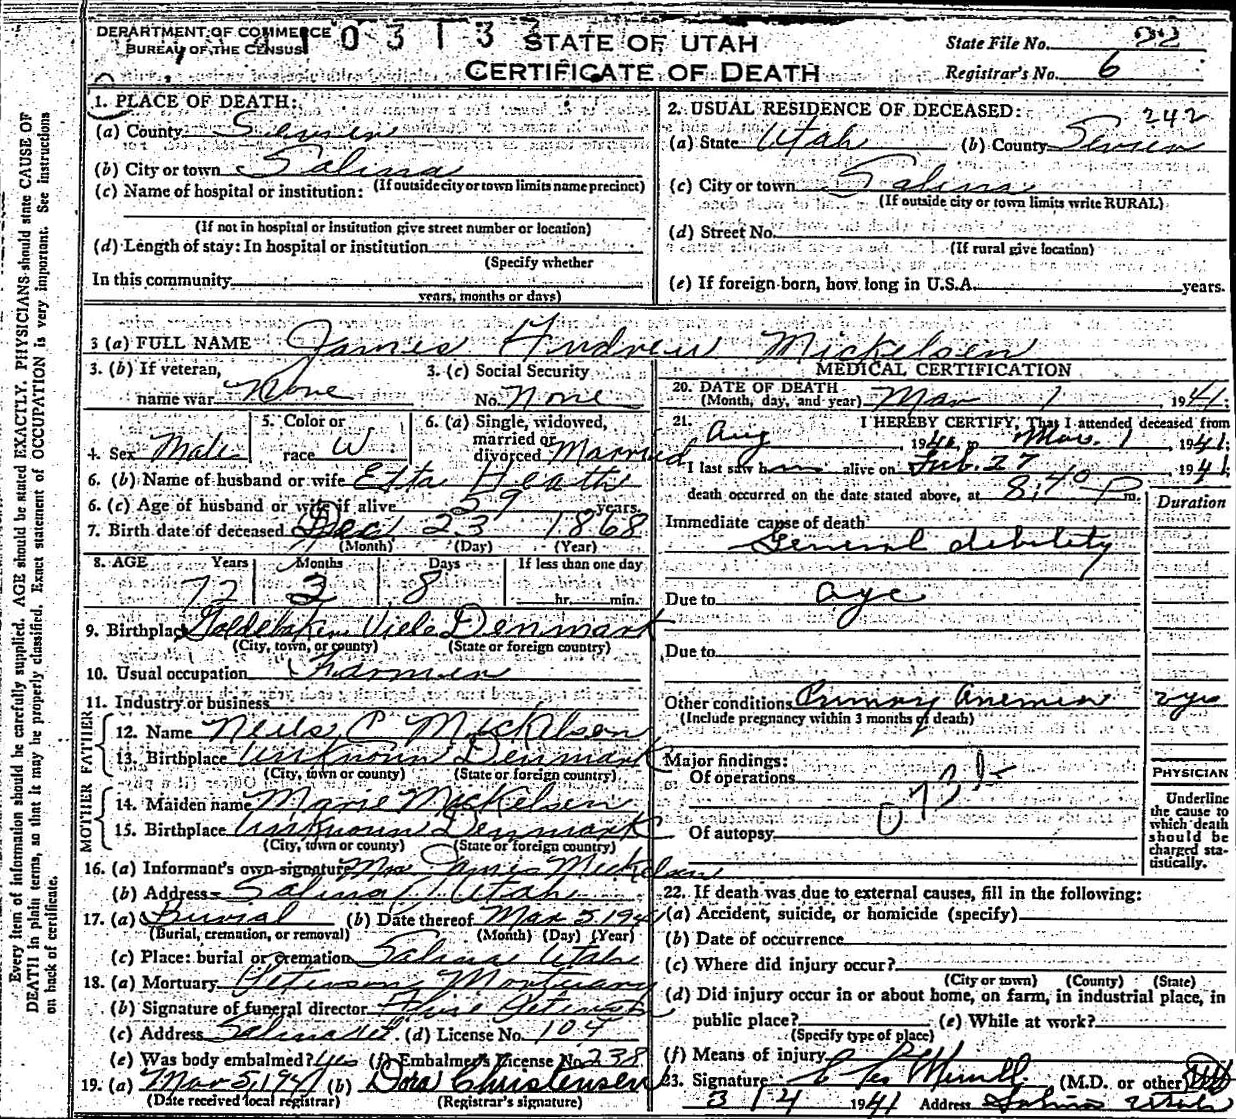 DEPARTMENT OF COMMERCE
BUREAU OF THE CENSUS
10313
STATE OF UTAH
CERTIFICATE OF DEATH
State File No. 22
Registrar's No. 6
Every item of information should be carefully supplied. AGE should be stated EXACTLY. PHYSICIANS should state CAUSE OF
DEATH in plain terms, so that it may be properly classified. Exact statement of OCCUPATION is very important. See instructions
on back of certificate.
1. PLACE OF DEATH:
(a) County Sevier
(b) City or town Salina
(If outside city or town limits name precinct)
(c) Name of hospital or institution:
(If not in hospital or institution give street number or location)
(d) Length of stay: In hospital or institution
(Specify whether
In this community
years, months or days)
2. USUAL RESIDENCE OF DECEASED: 242
(a) State Utah (b) County Sevier
(c) City or town Salina
(If outside city or town limits write RURAL)
(d) Street No.
(If rural give location)
(e) If foreign born, how long in U.S.A. years.
3 (a) FULL NAME James Andrew Mickelsen
3. (b) If veteran, name war None
3. (c) Social Security No. None
4. Sex Male
5. Color or race W
6. (a) Single, widowed, married or divorced Married
6. (b) Name of husband or wife Etta Heath
6. (c) Age of husband or wife if alive 59 years.
7. Birth date of deceased Dec 23 1868
(Month) (Day) (Year)
8. AGE Years Months Days If less than one day
72 3 8 hr. min.
9. Birthplace Denmark
(City, town, or county) (State or foreign country)
10. Usual occupation Farmer
11. Industry or business
FATHER
12. Name Neils C Mickelsen
13. Birthplace Unknown Denmark
(City, town or county) (State or foreign country)
MOTHER
14. Maiden name Marie Mickelsen
15. Birthplace Unknown Denmark
(City, town or county) (State or foreign country)
16. (a) Informant's own signature Mrs James Mickelsen
(b) Address Salina Utah
17. (a) Burial (b) Date thereof Mar 5, 1941
(Burial, cremation, or removal) (Month) (Day) (Year)
(c) Place: burial or cremation Salina Utah
18. (a) Mortuary Petersons Mortuary
(b) Signature of funeral director
(c) Address Salina Ut. (d) License No. 104
(e) Was body embalmed? Yes (f) Embalmer's License No. 238
19. (a) Mar 5, 1941 (b) Dora Christensen
(Date received local registrar) (Registrar's signature)
MEDICAL CERTIFICATION
20. DATE OF DEATH
(Month, day, and year) Mar 1, 1941.
21. I HEREBY CERTIFY, That I attended deceased from
Aug 1940, to Mar. 1 1941;
I last saw him alive on Feb. 27 1941;
death occurred on the date stated above, at 8:40 P m.
Duration
Immediate cause of death
General debility
Due to age
Due to
Other conditions Primary Anemia 2 yrs
(Include pregnancy within 3 months of death)
Major findings:
Of operations
073b
Of autopsy
PHYSICIAN
Underline
the cause to
which death
should be
charged sta-
tistically.
22. If death was due to external causes, fill in the following:
(a) Accident, suicide, or homicide (specify)
(b) Date of occurrence
(c) Where did injury occur?
(City or town) (County) (State)
(d) Did injury occur in or about home, on farm, in industrial place, in
public place? (e) While at work?
(Specify type of place)
(f) Means of injury
23. Signature Merrill (M.D. or other)
3 / 4 1941 Address Salina Utah